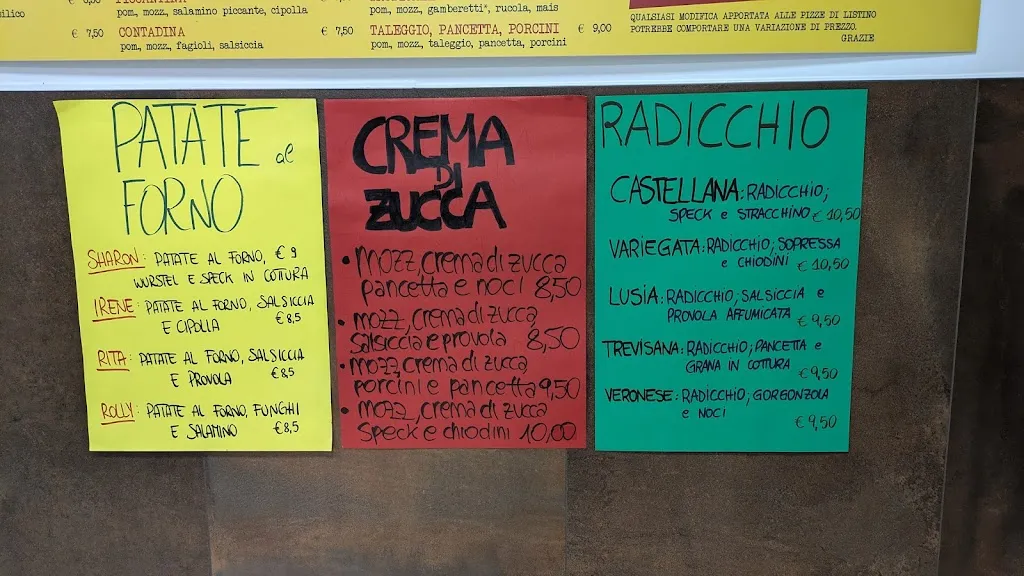 pom, mozz, salamino piccante, cipolla
€ 7,50 CONTADINA
pom, mozz, fagioli, salsiccia
pom, mozz, gamberetti*, rucola, mais
€ 7,50 TALEGGIO, PANCETTA, PORCINI € 9,00
pom, mozz, taleggio, pancetta, porcini
QUALSIASI MODIFICA APPORTATA ALLE PIZZE DI LISTINO
POTREBBE COMPORTARE UNA VARIAZIONE DI PREZZO.
GRAZIE
PATATE al
FORNO
SHARON: PATATE AL FORNO, € 9
WURSTEL E SPECK IN COTTURA
IRENE: PATATE AL FORNO, SALSICCIA
E CIPOLLA €8,5
RITA: PATATE AL FORNO, SALSICCIA
E PROVOLA €8,5
ROLLY: PATATE AL FORNO, FUNGHI
E SALAMINO €8,5
CREMA
DI
ZUCCA
• mozz, crema di zucca
pancetta e noci 8,50
• mozz, crema di zucca
Salsiccia e provola 8,50
• mozz, crema di zucca
porcini e pancetta 9,50
• mozz, crema di zucca
Speck e chiodini 10,00
RADICCHIO
CASTELLANA: RADICCHIO,
SPECK e STRACCHINO € 10,50
VARIEGATA: RADICCHIO, SOPRESSA
e CHIODINI € 10,50
LUSIA: RADICCHIO, SALSICCIA e
PROVOLA AFFUMICATA € 9,50
TREVISANA: RADICCHIO, PANCETTA e
GRANA IN COTTURA €9,50
VERONESE: RADICCHIO, GORGONZOLA
e NOCI
€ 9,50